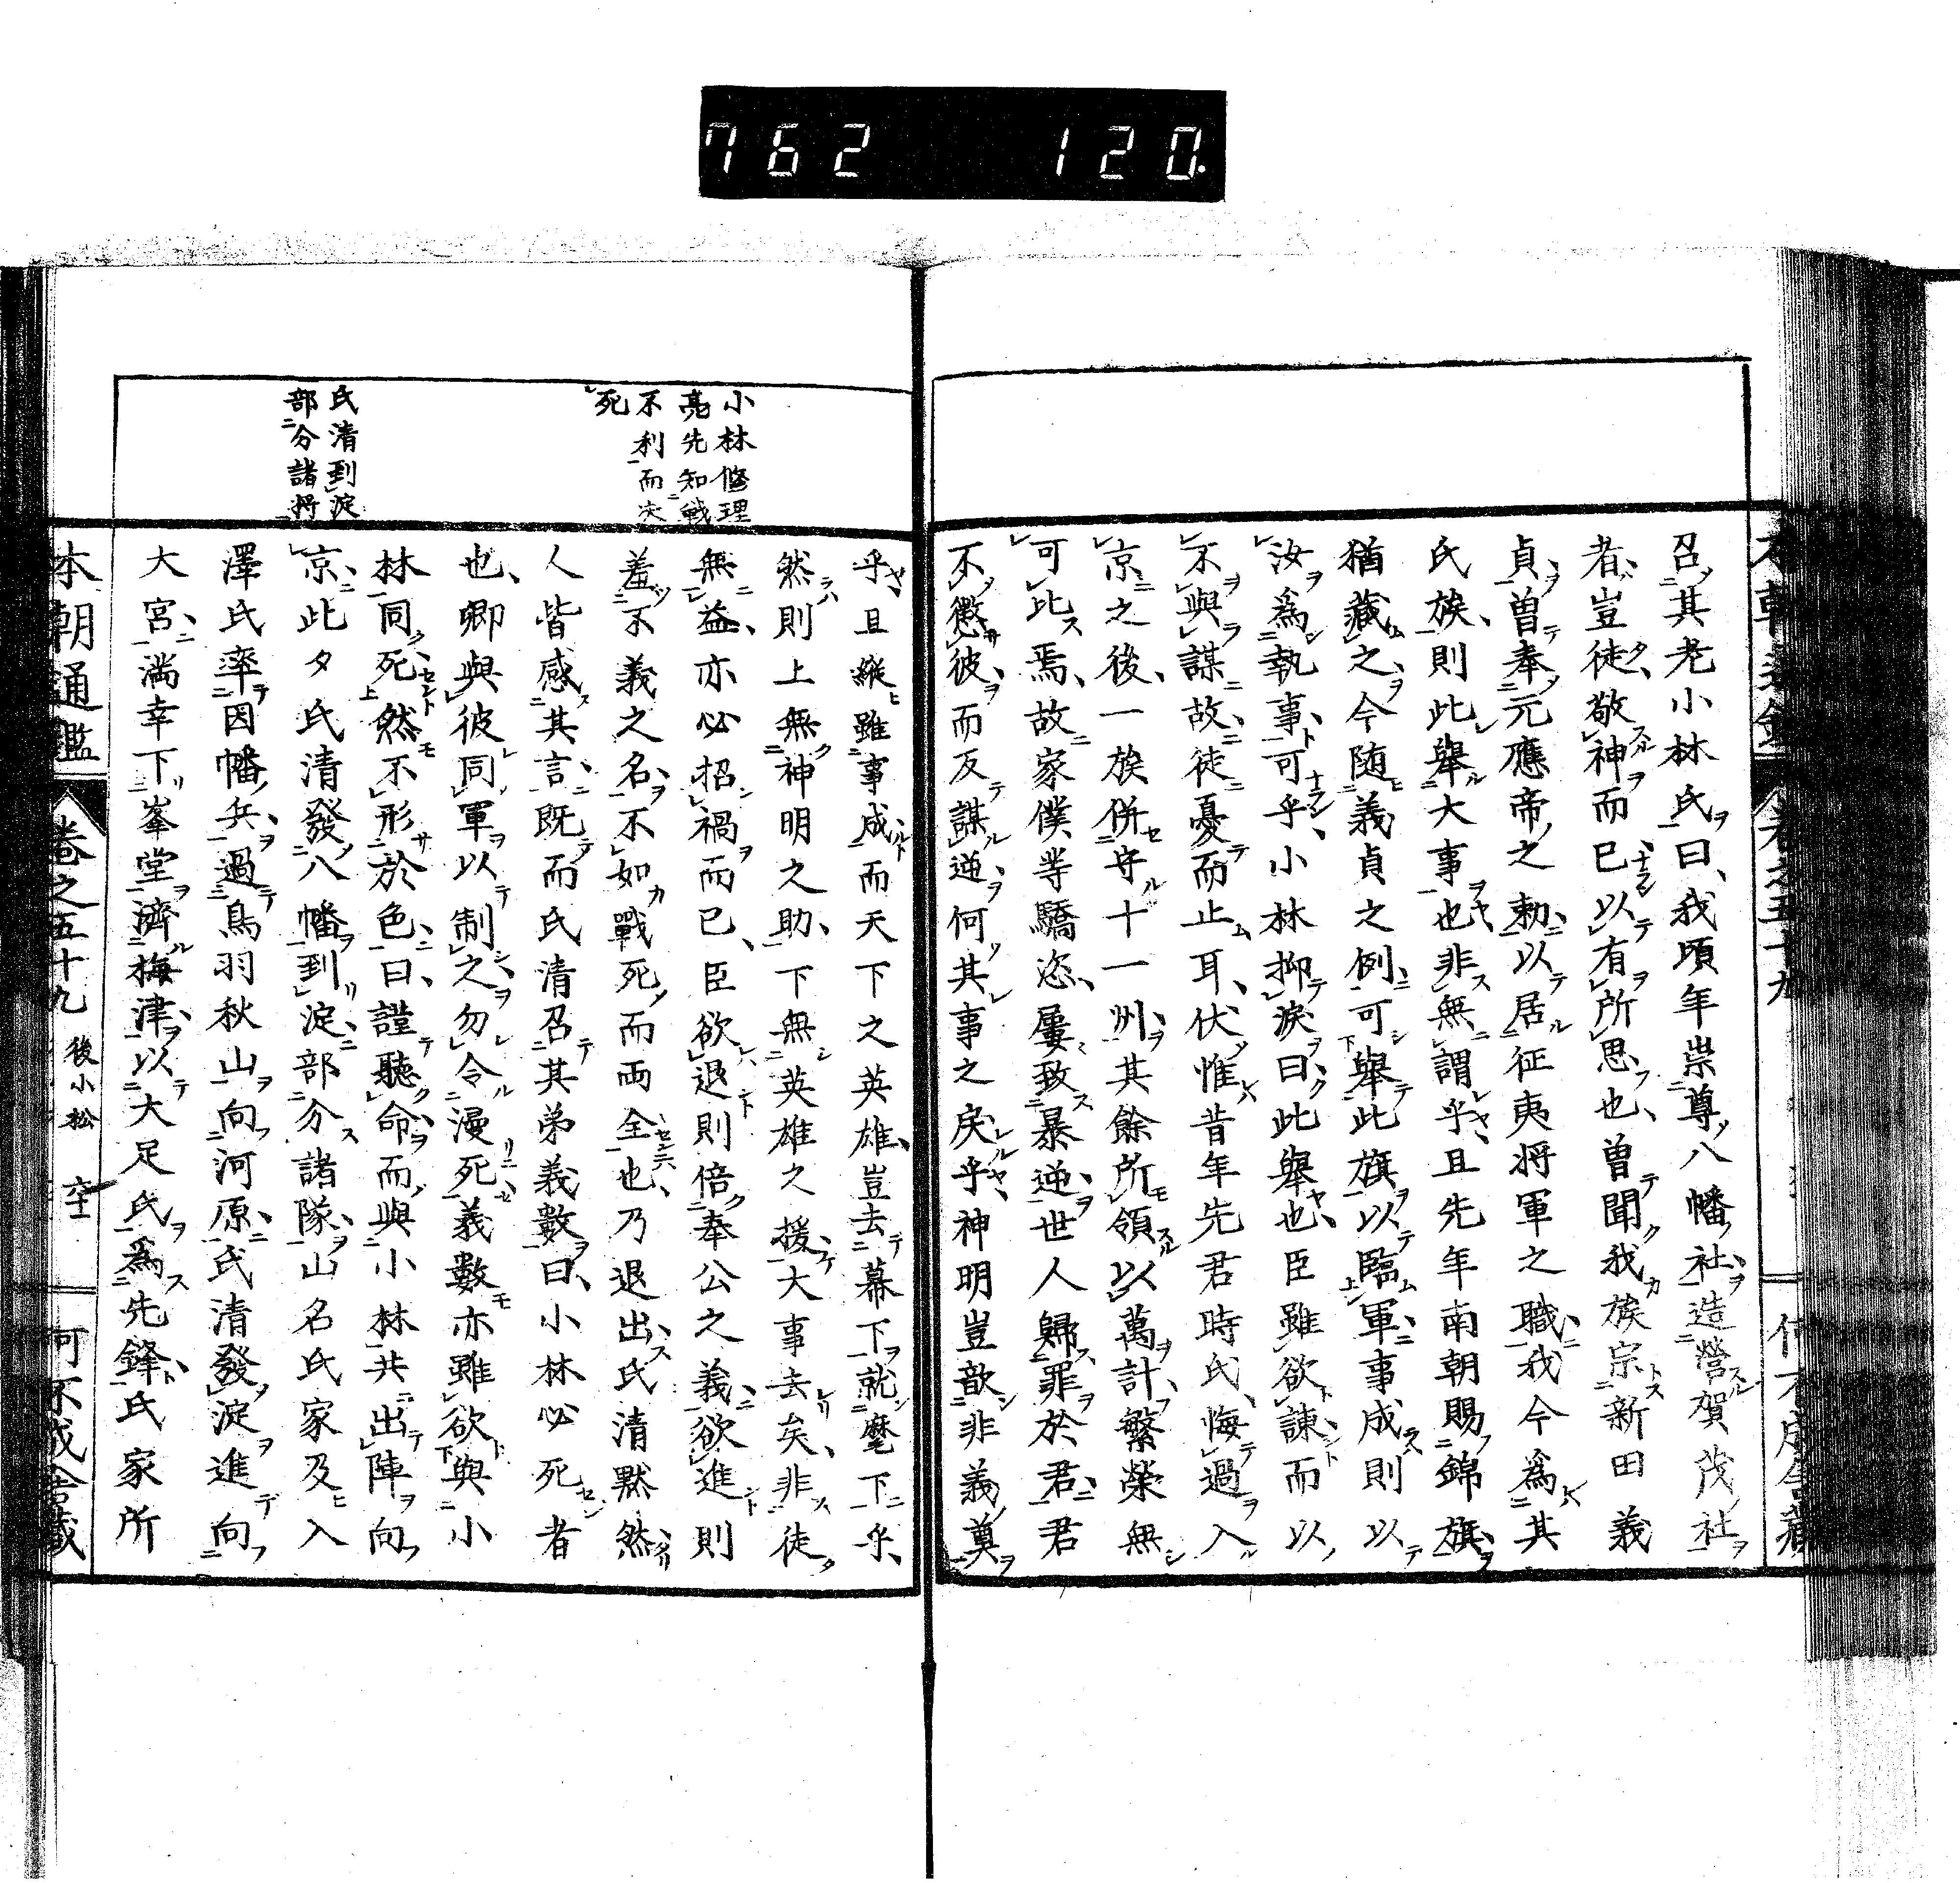 762 120
召其老小林氏曰我頃年崇尊八幡社造營賀茂社
者豈徒敬神而已以有所思也曽聞我族宗新田義
貞曽奉元應帝之勅以居征夷将軍之職我今為其
氏族則此舉大事也非無謂乎且先年南朝賜錦旗
猶藏之今随義貞之例可舉此旗以臨軍事成則以
汝為執事可乎小林抑淚曰此舉也臣雖欲諫而以
不與謀故徒憂而止耳伏惟昔年先君時氏悔過入
京之後一族併守十一州其餘所領以萬計繁榮無
可比焉故家僕等驕恣屢致暴逆世人歸罪於君君
不懲彼而反謀逆何其事之戾乎神明豈歆非義奠
小林修理
亮先知戦
不利而决
死
氏清到淀
部分諸将
乎且縱雖事成而天下之英雄豈去幕下就麾下乎
然則上無神明之助下無英雄之援大事去矣非徒
無益亦必招禍而已臣欲退則倍奉公之義欲進則
羞不義之名不如戰死而両全也乃退出氏清黙然
人皆感其言既而氏清召其弟義數曰小林必死者
也卿與彼同軍以制之勿令漫死義數亦雖欲與小
林同死然不形於色曰謹聽命而與小林共出陣向
京此夕氏清發八幡到淀部分諸隊山名氏家及入
澤氏率因幡兵過鳥羽秋山向河原氏清發淀進向
大宮満幸下峯堂濟梅津以大足氏為先鋒氏家所
本朝通鑑 卷之五十九 後小松 六十一 何不成舎藏